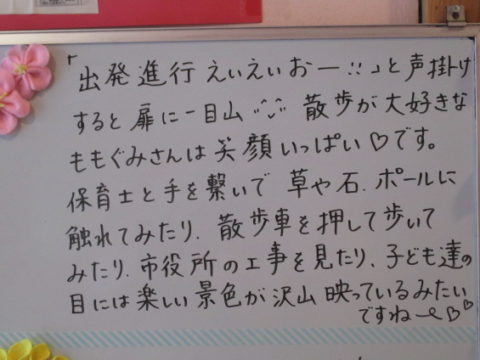 「出発進行えいえいおー!!」と声掛け
すると扉に一目山 散歩が大好きな
ももぐみさんは笑顔いっぱい♡です。
保育士と手を繋いで 草や石、ポールに
触れてみたり、散歩車を押して歩いて
みたり、市役所の工事を見たり、子ども達の
目には楽しい景色が沢山映っているみたい
ですね～♡♡